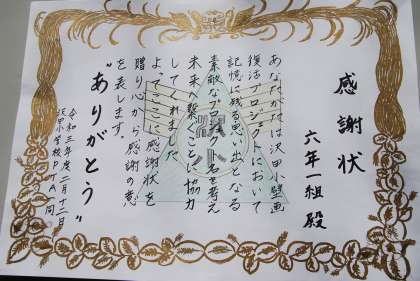 感謝状
六年一組殿
あなたがたは沢田小壁画
復活プロジェクトにおいて
記憶に残る思い出となる
素敵なプロジェクト名を考え
未来へ繋ぐことに協力
してくれました
よってここに感謝状を
贈り心から感謝の意
を表します。
“ありがとう”
令和三年度二月十二日
沢田小学校PTA一同